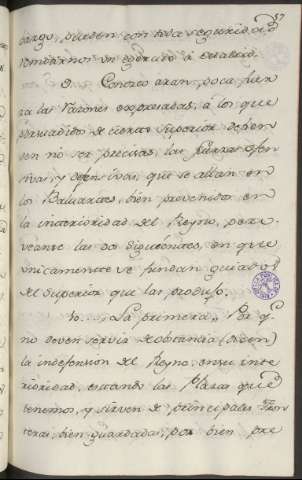 57
cargo, pueden con toda seguridad
rendirnos un exercito á
3. Conozco aran poca fuer
za las razones expresadas, á los que
persuadidos de cierto Superior defien
den no ser precisas las fuerzas ofen
sivas, y defensivas, que se allan en
los Baluartes, bien prevenidos en
la interioridad del Reyno, pero
veanse las dos siguientes, en que
unicamente se fundan guiados
del Superior que las produjo.
4. La primera,, Por q.e
no deven servir de obstancia (dicen)
la indefension del Reyno, en su inte
rioridad, estando las Plazas que
tenemos, y sirven de principales Fron
teras, bien guardadas, por bien pre